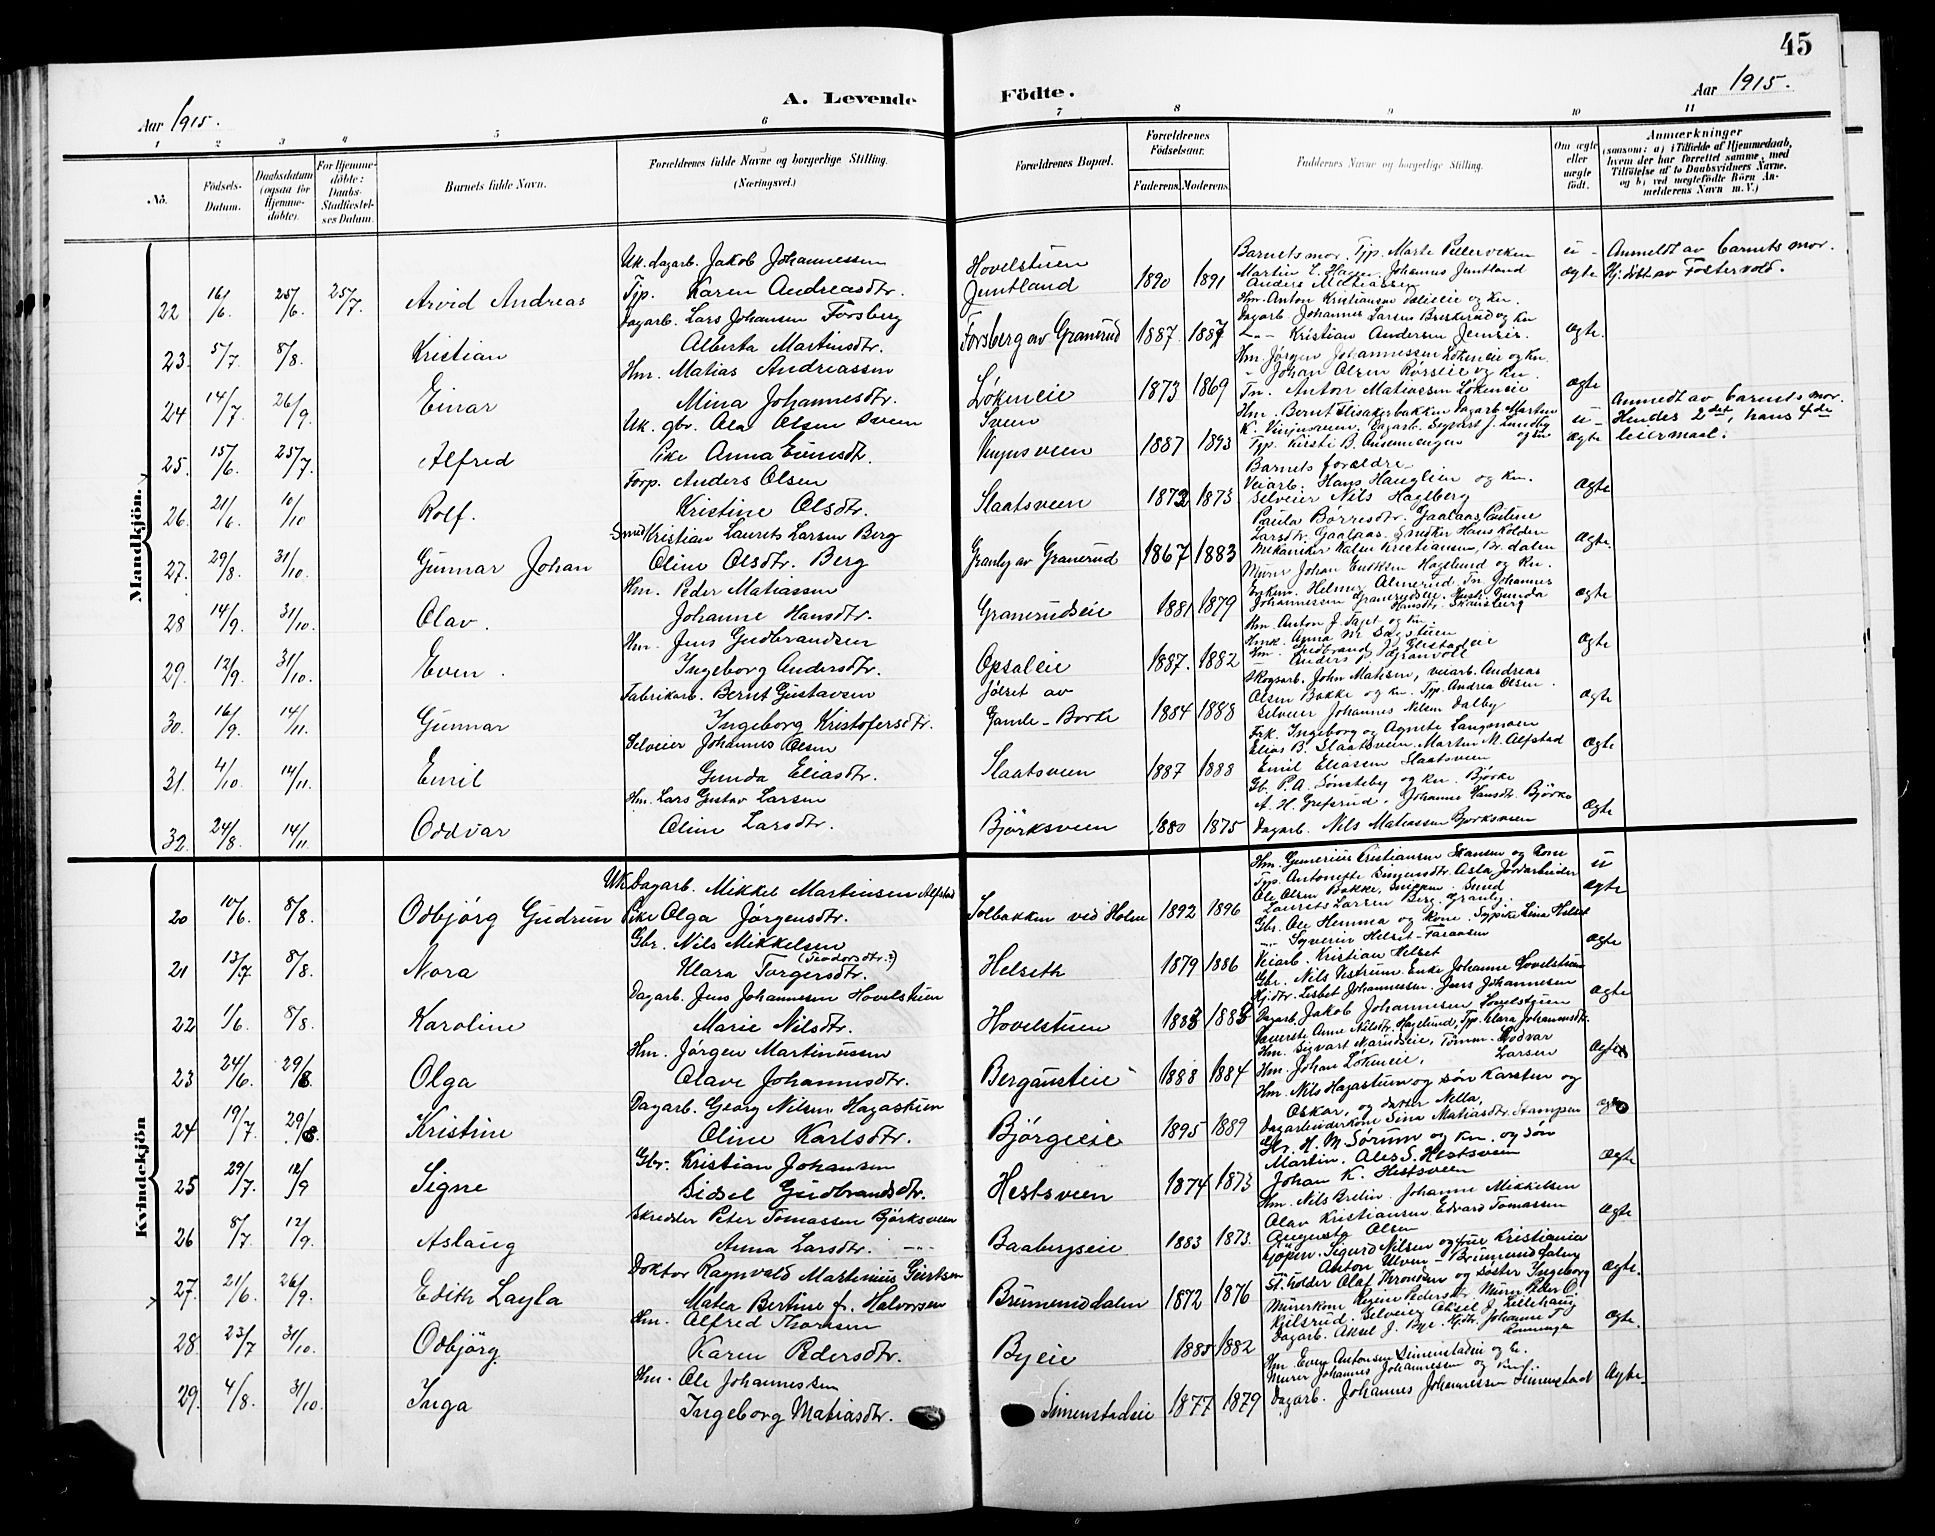 45
Aar 1915.
A. Levende Födte.
Aar 1915.
1 2 3 4 5 6 7 8 9 10 11
No.
Födsels-Datum.
Daabsdatum (ogsaa for Hjemme-döbte).
For Hjemme-döbte: Daabs-Stadfæstel-ses Datum.
Barnets fulde Navn.
Forældrenes fulde Navne og borgerlige Stilling. (Næringsvei.)
Forældrenes Bopæl.
Forældrenes Födselsaar.
Faderens. Moderens.
Faddernes Navne og borgerlige Stilling.
Om ægte eller uægte födt.
Anmærkninger (saasom: a) i Tilfælde af Hjemmedaab, hvem der har forrettet samme, med Tilföielse af to Daabsvidners Navne. og b) ved uægtefödte Börn An-melderens Navn m. V.)
Mandkjön.
22 16/6. 25/6. 25/7. Arvid Andreas
Uk. dagarb. Jakob Johannessen
Tjp. Karen Andreasdtr.
Hovelstuen
Jentland 1890 1891
Barnets mor. Tjp. Marte Pellerviken
Martin L. Hagen Johannes Jentland
Anders Matiassen
u-ægte
Anmeldt av barnets mor.
Hj. döbt av Fostervold.
23. 5/7. 8/8. Kristian
Dagarb. Lars Johansen Forsberg
Alberta Martinsdtr.
Forsberg av Granerud 1887. 1887
Hm. Anton Kristiansen Dælieie og kn.
Dagarb. Johannes Larsen Breskerud og kn
-"- Kristian Andersen Jemsis.
ægte.
24 14/7. 26/9. Einar
Hm. Matias Andreassen
Mina Johannesdtr.
Løkeneie 1873 1869
Hm. Jörgen Johannessen Lökeneie og kn.
" Johan Olsen Rörseie og kn.
Tn. Anton Matiassen Løkeneie
ægte
25. 15/6. 25/7. Alfred
Uk. gbr. Ola Olsen Sveen
Pike Anna Evensdtr.
Sveen
Vinjusveen 1887 1893
Hm. Bernt Flisakerbakken Dagarb. Martin
K. Vinjusveen, Dagarb. Sigvart J. Lundby
Tjp. Kirsti B. Ansemengen
u-ægte
Anmedt av barnets mor.
Hendes 2det, hans 4de
leiermaal.
26. 21/6. 10/10 Rolf.
Forp. Anders Olsen
Kristine Olsdtr.
Slaatsveen 1872 1873
Barnets forældre
Veiarb. Hans Hauglien og kn.
Selveier Nils Hagelberg
ægte
27. 29/8. 31/10. Gunnar Johan
Smed Kristian Laurets Larsen Berg
Oline Olsdtr. Berg
Granly av Granerud 1867 1883
Paula Börresdtr. Gaalaas, Pauline
Larsdtr. Gaalaas. Snedker Hans Kolden
Mekaniker Kalen Kristiansen, Br. dalen
ægte.
28 14/9. 31/10. Olav.
Hm. Peder Matiassen
Johanne Hansdtr.
Granerudseie 1881 1879
Murer Johan Eriksen Hagelund og kn.
Enkem. Helmer Almerud. Tn. Johannes
Johannessen Granerudseie. Hustr. Gunda
Hansdtr. Skausberg
ægte
29. 12/9. 31/10. Even.
Hm. Jens Gudbrandsen
Ingeborg Andersdtr.
Opsaleie 1887. 1882
Hm. Anton J. Saget og kn
Hmk. Anna M. Dagstuen
Hm. Gudbrand J. Flestadeie
Anders P. Granvoll
ægte
30. 16/9. 14/11. Gunnar
Fabrikarb. Bernt Gustavsen
Ingeborg Kristofersdtr.
Jölset av
Gamle-Borke 1884 1888
Skogsarb. John Matisen, veiarb. Andreas
Olsen Bakke og kn. Tjp. Andrea Olsen.
Selveier Johannes Nilsen Dalby
ægte
31. 4/10. 14/11. Emil
Selveier Johannes Olsen
Gunda Eliasdtr.
Slaatsveen 1887 1888
Frk. Ingeborg og Agnete Langsveen
Elias B. Slaatsveen. Martin M. Alfstad
Emil Eliasen Slaatsveen
ægte
32. 24/8. 14/11. Oddvar
Hm. Lars Gustav Larsen
Oline Larsdtr.
Björksveen 1880 1875
Gb. P. A. Sönsteby og kn. Björke
A. H. Grefsrud. Johanne Hansdtr. Björke
Dagarb. Nils Matiassen Bjorksveen
ægte
Kvindekjön
20 10/6. 8/8. Odbjörg Gudrun
Uk. Dagarb. Mikkel Martinsen Alfstad
Pike Olga Jörgensdtr.
Solbakken ved Holm 1892 1896
Hm. Gunerius Kristiansen Stansen og kone
Tjp. Antonette Simensdtr. Asla, Jordarbeider
Ole Olsen Bakke, Smed
Laurets Larsen Berg. Granly.
u ægte
21 13/7. 8/8. Nora
Gbr. Nils Mikkelsen
(Teodorsdtr.?)
Klara Torgersdtr.
Helseth 1879 1886
Gbr. Ole Hemma og kone. Sypike Lina Helset
-"- Syverin Helset-Faraasen
Veiarb. Kristian Helset
ægte
22 1/6. 8/8. Karoline
Dagarb. Jens Johannesen Hovelstuen
Marie Nilsdtr.
Hovelstuen 1883 1885
Gbr. Nils Vestrum. Enke Johanne Hovelstuen
Hjdtr. Lisbet Johannessen. Jens Johannesen
Dagarb. Jakob Johannesen, Hovelstuen
ægte
23 24/6. 29/8. Olga
Hm. Jörgen Martinussen
Olave Johannesdtr.
Berganseie 1888 1884
Væverske Anne Nilsdtr. Hagelund, Tjp. Klara Johannsdtr.
Hm. Sigvart Narudseie, Tömm. Hodvar
Larsen
Hm. Johan Løkeneie.
ægte
24 19/7. 29/8. Kristine
Dagarb. Georg Nilsen Hagastuen
Oline Karlsdtr.
Björgeeie 1895 1889
Hm. Nils Hagastuen og søn Karsten og
Oskar, og datter Nella,
Dagarbeiderkone Sina Matiasdtr. Stampen
ægte
25 29/7. 12/9 Signe
Gbr. Kristian Johansen
Sidsel Gudbrandsdtr.
Hestsveen 1874 1873
H. M. Sörum og kn. og søn
Martin. Oles S. Hestsveen
Johan K. Hestsveen
ægte
26 8/7. 12/9. Aslaug
Skredder Peter Tomassen Björksveen
Anna Larsdtr. -"-
Baabergseie 1883 1873.
Hm. Nils Brelin. Johanne Mikkelsen
Olav Kristiansen Edvard Tomassen
Augusta Olsen
ægte
27. 21/6. 26/9. Edith Layla
Doktor Ragnvald Martinius Gjertsen
Matea Bertine f. Halvorsen
Brumunddalen 1872 1876
Kjöpm. Sigurd Nilsen og frue Kristiania
Anton Ulven - Brumunddalen
St. holder Olaf Kronsen og søster Ingeborg
ægte.
28. 23/7 31/10. Odbjörg.
Hm. Alfred Thorsen
Karen Pedersdtr.
Byeie 1885 1882
Murerkone Regine Pedersdtr. Murer Peder O.
Kjelsrud. Selveier Aksel J. Lillehaug
Dagarb. Aksel J. Bye. Gdtr. Johanne T.
Ronningen
ægte.
29. 4/8. 31/10. Inga
Hm. Ole Johannessen
Ingeborg Matiasdtr.
Simenstadeie 1877 1879
Hm. Even Antonsen Simenstadeie og h.
Murer Johannes Johannessen og kn.
Dagarb. Johannes Johannessen Simenstad
ægte